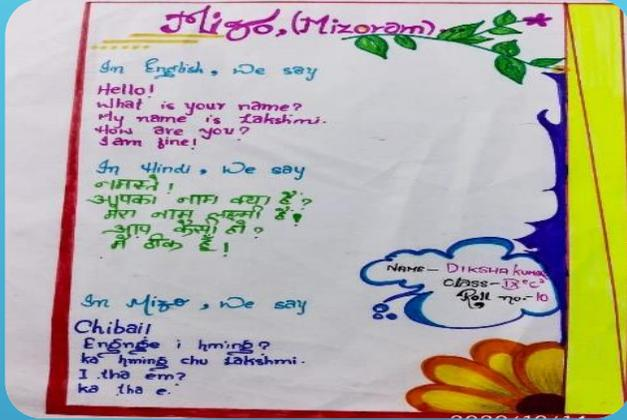 Mizo, (Mizoram)
In English, We say
Hello!
What is your name?
My name is Lakshmi.
How are you?
I am fine!
In Hindi, We say
नमस्ते!
आपका नाम क्या है?
मेरा नाम लक्ष्मी है!
आप कैसी हो?
में ठीक हूँ!
NAME- DIKSHA kumari
Class- IX "C"
Roll no.- 10
In Mizo, We say
Chibai!
Engnge i hming?
ka hming chu Lakshmi.
I tha em?
ka tha e.